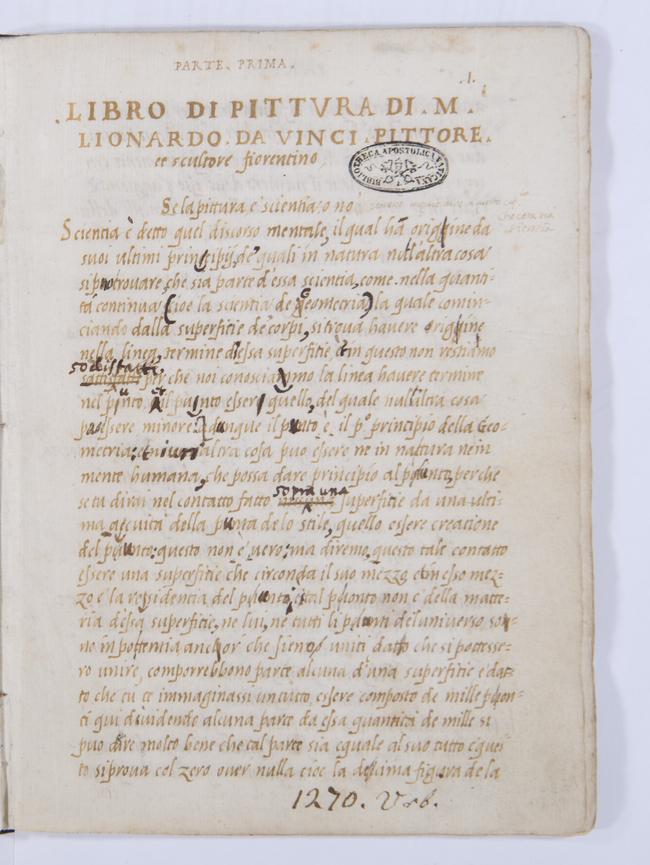 PARTE. PRIMA.
.1.
.LIBRO DI PITTVRA DI. M.
LIONARDO. DA VINCI. PITTORE.
et scultore fiorentino
BIBLIOTHECA APOSTOLICA VATICANA
Se la pittura e scientia o no
Scientia è detto quel discorso mentale, il qual ha origgine da
suoi ultimi principij, de quali in natura null'altra cosa
si puo trouare, che sia parte d'essa scientia, come nella quanti-
tá continua (cioe la scientia de Geometria) la quale comin-
ciando dalla superfitie de corpi, si troua hauere origgine
nella linea, termine dessa superfitie, et in questo non restiamo
sodisfatti, perche noi conosciammo la linea hauere termine
nel punto, et il punto esser quello, del quale null'altra cosa
po essere minore. adunque il punto è il pº principio della Geo-
metria: et niuna altra cosa puo essere ne in natura ne in
mente humana, che possa dare principio al punto, perche
se tu dirai nel contatto fatto sopra una superfitie da una ulti-
ma accuita della punta de lo stile, quello essere creatione
del punto: questo non è uero: ma diremo, questo tale contatto
essere una superfitie che circonda il suo mezzo et in esso mez-
zo e la residentia del punto, e tal punto non e della matte-
ria dessa superfitie, ne lui, ne tutti li punti del uniuerso, son-
no in pottentia anchor che sieno uniti dato che si pottesse-
ro unire, comporrebbono parte alcuna d'una superfitie e dat-
to che tu te immaginassi un tutto, essere composto de mille pon-
ti qui diuidendo alcuna parte da essa quantitá de mille si
puo dire molto bene che tal parte sia eguale al suo tutto e ques
to si proua col zero ouer nulla cioe la decima figura de la
1270. Urb.